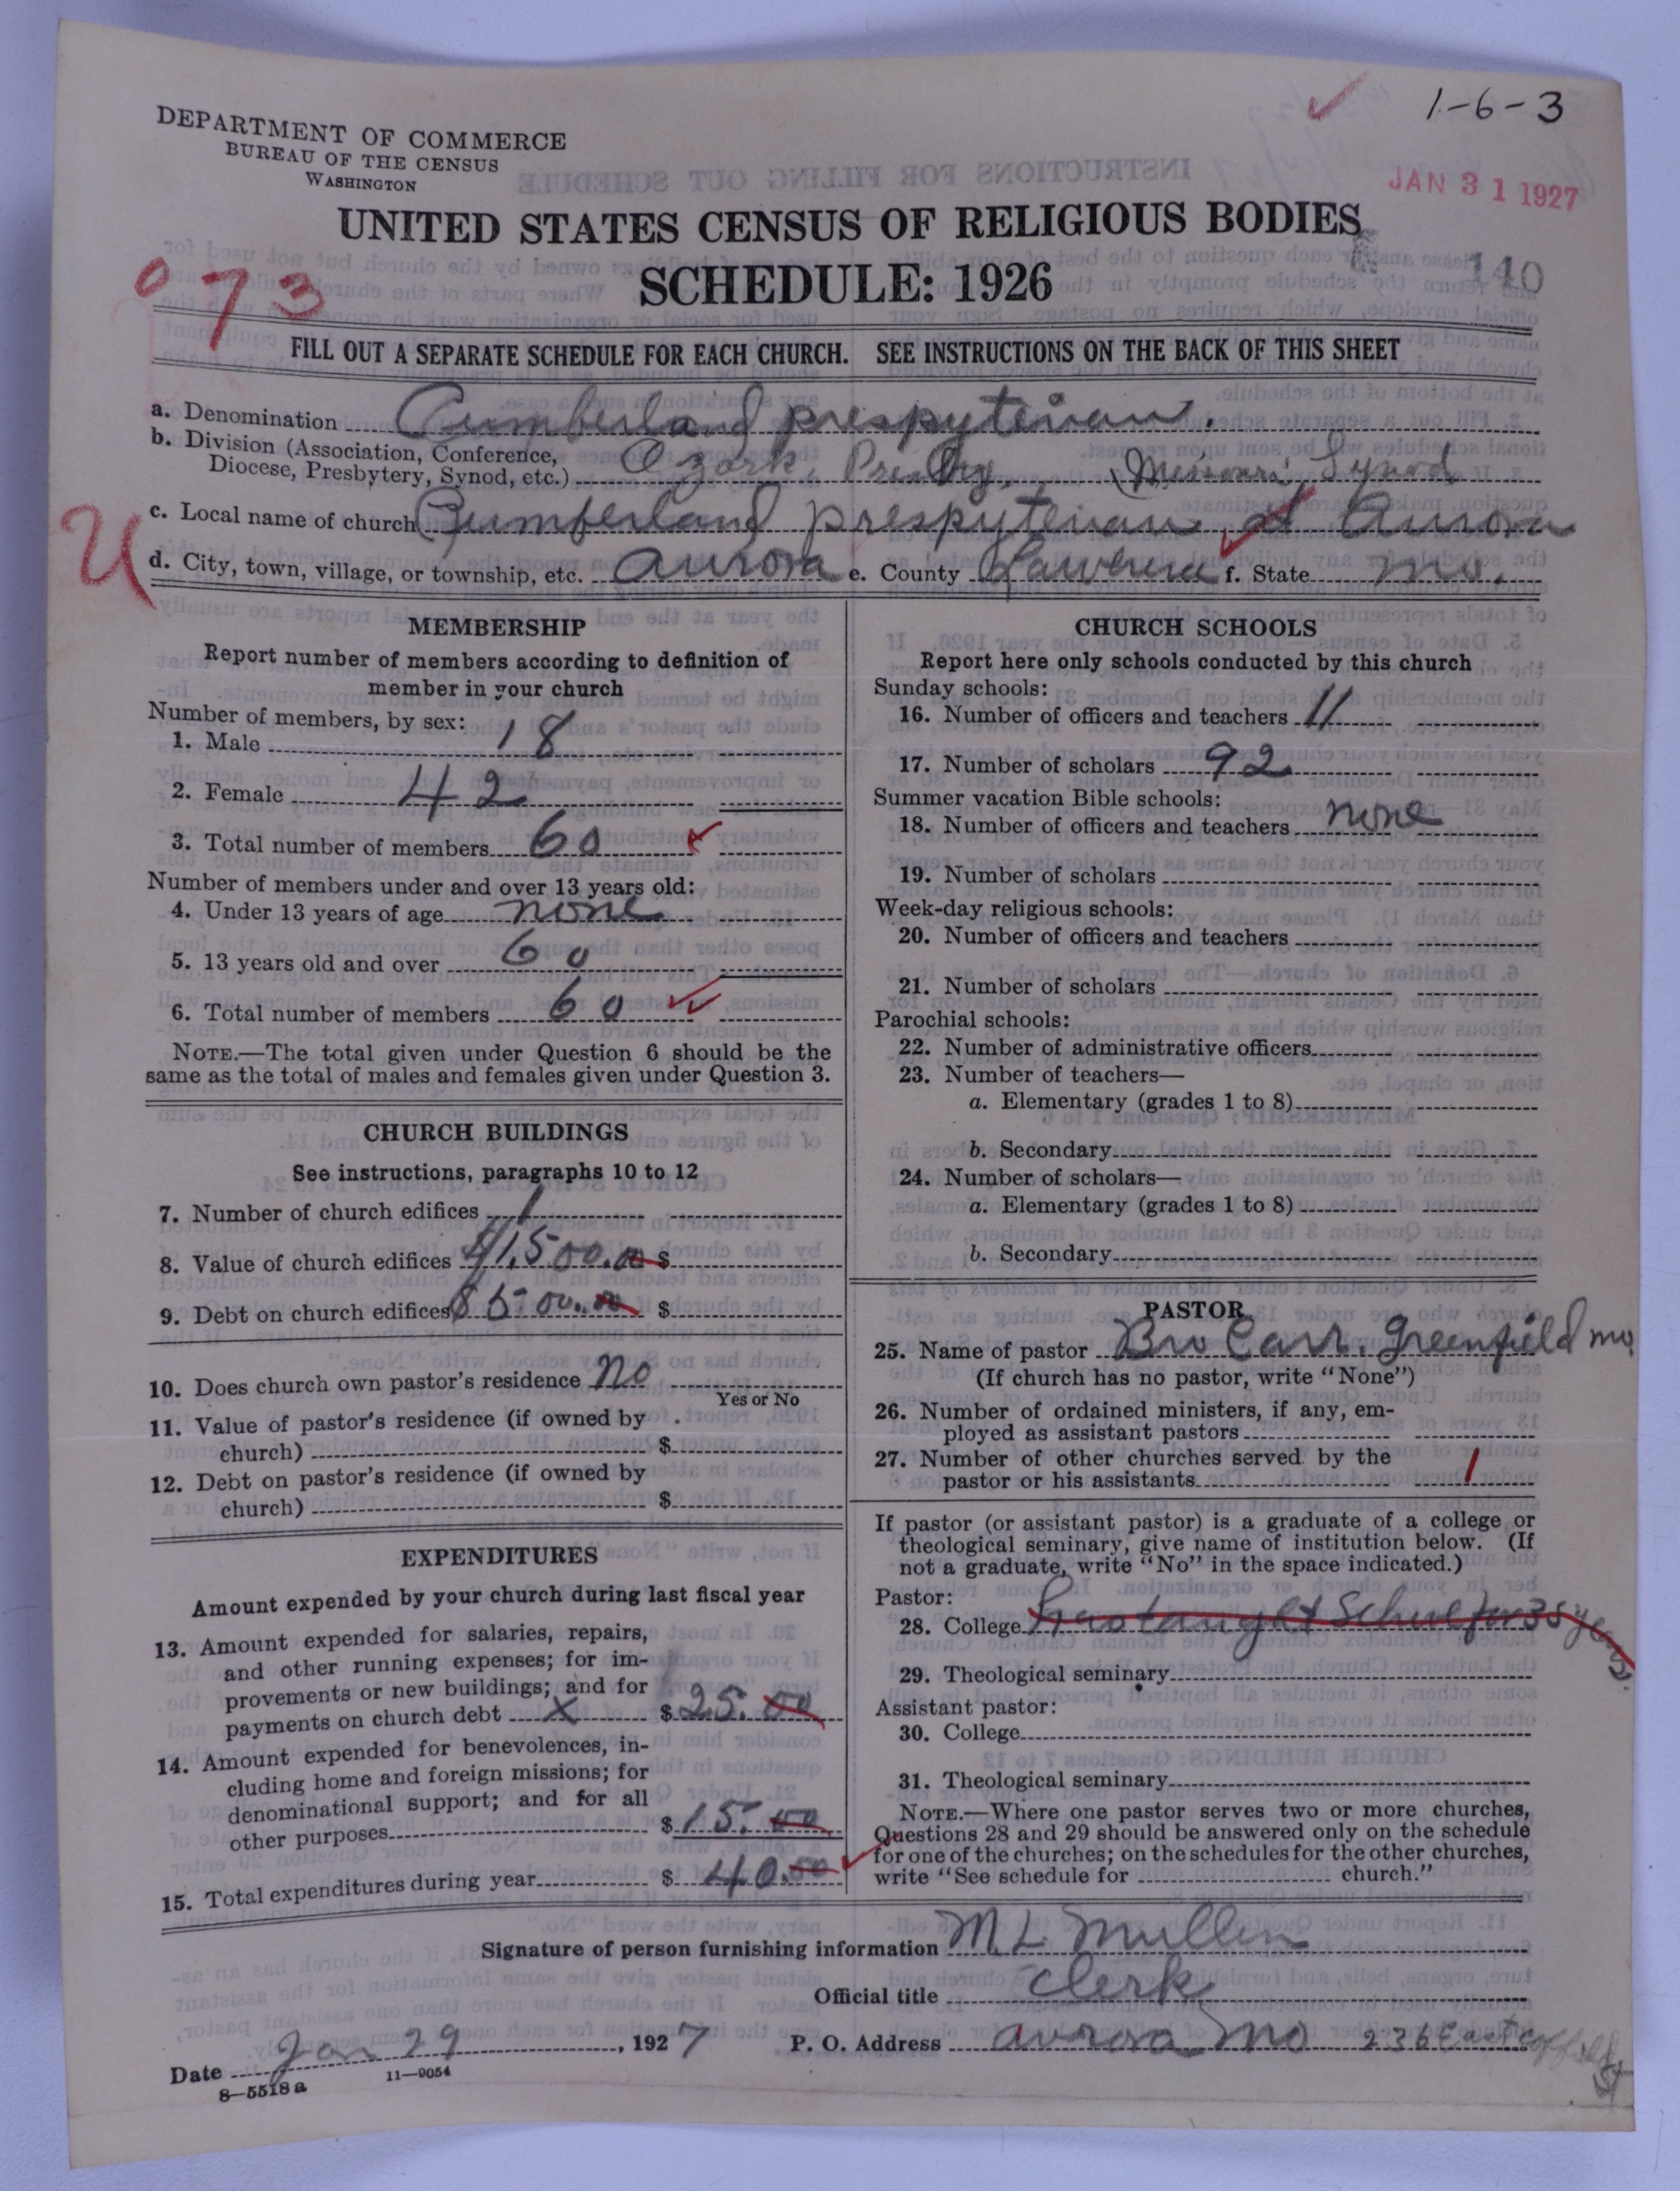 1-6-3
DEPARTMENT OF COMMERCE
BUREAU OF THE CENSUS
WASHINGTON
JAN 31 1927
UNITED STATES CENSUS OF RELIGIOUS BODIES
SCHEDULE: 1926
140
073
FILL OUT A SEPARATE SCHEDULE FOR EACH CHURCH. SEE INSTRUCTIONS ON THE BACK OF THIS SHEET
a. Denomination Cumberland prespyterian.
b. Division (Association, Conference,
Diocese, Presbytery, Synod, etc.) Ozark, Missouri Synod
c. Local name of church Cumberland prespyterian at Aurora
U
d. City, town, village, or township, etc. Aurora e. County Lawrence f. State mo.
MEMBERSHIP
Report number of members according to definition of
member in your church
Number of members, by sex:
1. Male 18
2. Female 42
3. Total number of members 60
Number of members under and over 13 years old:
4. Under 13 years of age none
5. 13 years old and over 60
6. Total number of members 60
NOTE.—The total given under Question 6 should be the
same as the total of males and females given under Question 3.
CHURCH BUILDINGS
See instructions, paragraphs 10 to 12
7. Number of church edifices 1
8. Value of church edifices 1,500.00 $
9. Debt on church edifices $500.00 $
10. Does church own pastor's residence no
Yes or No
11. Value of pastor's residence (if owned by
church) $
12. Debt on pastor's residence (if owned by
church) $
EXPENDITURES
Amount expended by your church during last fiscal year
13. Amount expended for salaries, repairs,
and other running expenses; for im-
provements or new buildings; and for
payments on church debt x $ 25.00
14. Amount expended for benevolences, in-
cluding home and foreign missions; for
denominational support; and for all
other purposes $ 15.00
15. Total expenditures during year $ 40.00
CHURCH SCHOOLS
Report here only schools conducted by this church
Sunday schools:
16. Number of officers and teachers 11
17. Number of scholars 92
Summer vacation Bible schools:
18. Number of officers and teachers none
19. Number of scholars
Week-day religious schools:
20. Number of officers and teachers
21. Number of scholars
Parochial schools:
22. Number of administrative officers
23. Number of teachers—
a. Elementary (grades 1 to 8)
b. Secondary
24. Number of scholars—
a. Elementary (grades 1 to 8)
b. Secondary
PASTOR
25. Name of pastor Bro Carr. Greenfield mo.
(If church has no pastor, write "None")
26. Number of ordained ministers, if any, em-
ployed as assistant pastors
27. Number of other churches served by the
pastor or his assistants 1
If pastor (or assistant pastor) is a graduate of a college or
theological seminary, give name of institution below. (If
not a graduate, write "No" in the space indicated.)
Pastor:
28. College has taught School for 35 years.
29. Theological seminary
Assistant pastor:
30. College
31. Theological seminary
NOTE.—Where one pastor serves two or more churches,
Questions 28 and 29 should be answered only on the schedule
for one of the churches; on the schedules for the other churches,
write "See schedule for church."
Signature of person furnishing information M L Mullen
Official title Clerk
Date Jan 29, 1927 P. O. Address Aurora Mo 236 East St
8—5518a 11—9054